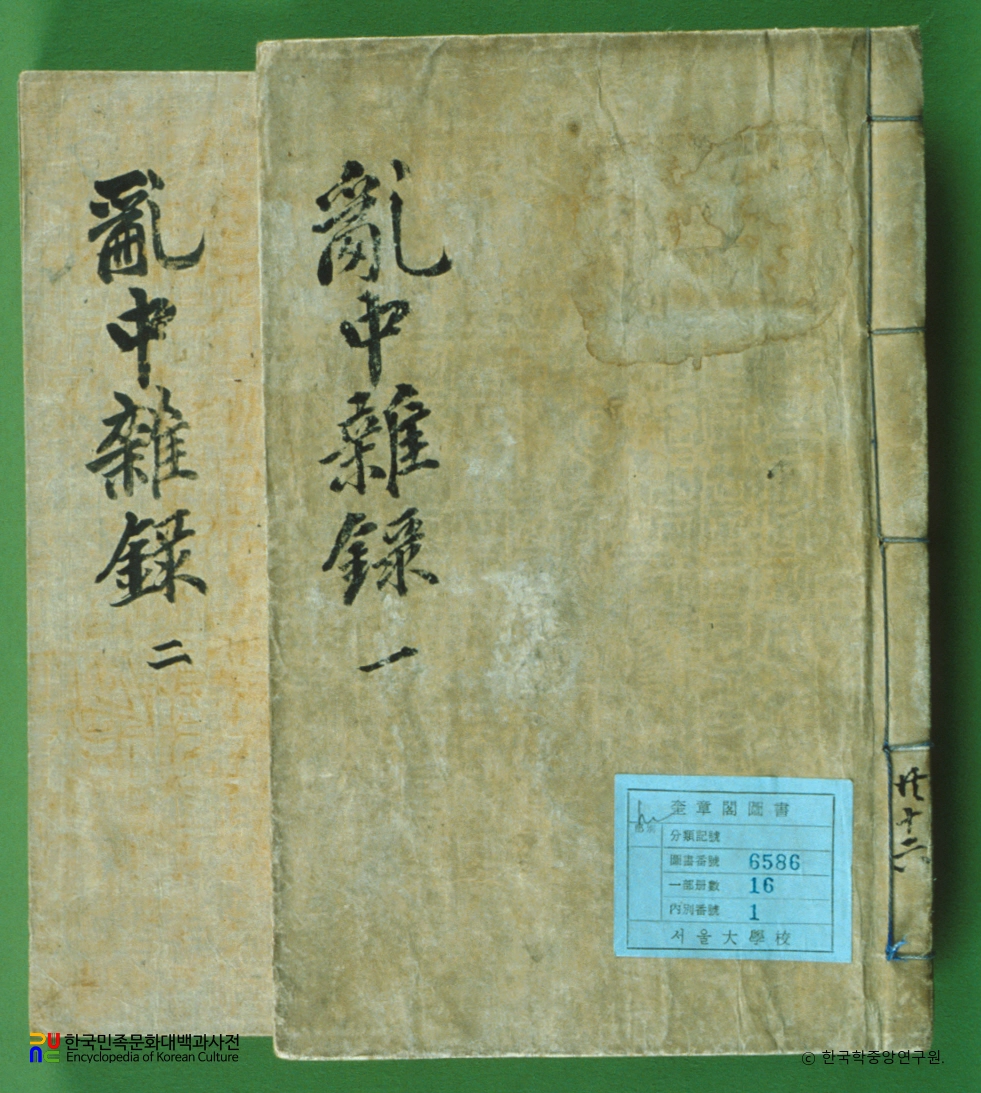 亂中雜錄
一
亂中雜錄
二
奎章閣圖書
分類記號
圖書番號 6586
一部冊數 16
內別番號 1
서울大學校
共十二
한국민족문화대백과사전
Encyclopedia of Korean Culture
© 한국학중앙연구원.